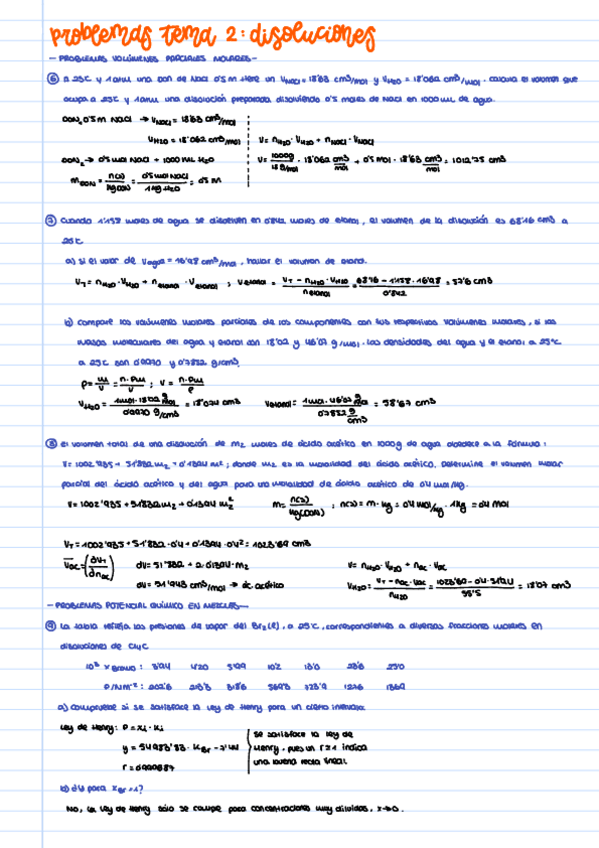 problemas tema 2: disoluciones
- PROBLEMAS VOLÚMENES PARCIALES MOLARES -
⑥ a 25ºC y 1 atm una don de NaCl 0'5 m tiene un V̄NaCl = 18'63 cm3/mol y V̄H2O = 18'062 cm3/mol. calcula el volumen que
ocupa a 25ºC y 1 atm una disolución preparada disolviendo 0'5 moles de NaCl en 1000 mL de agua.
DON1 0'5 m NaCl → V̄NaCl = 18'63 cm3/mol
V̄H2O = 18'062 cm3/mol V = nH2O · V̄H2O + nNaCl · V̄NaCl
DON2 → 0'5 mol NaCl + 1000 mL H2O V = 1000g / 18 g/mol · 18'062 cm3/mol + 0'5 mol · 18'63 cm3/mol = 1012'75 cm3
mDON = n(s)/kgDON = 0'5 mol NaCl / 1 kg H2O = 0'5 m
⑦ Cuando 1'158 moles de agua se disuelven en 0'842 moles de etanol, el volumen de la disolución es 68'16 cm3 a
25ºC
a) si el valor de V̄agua = 16'98 cm3/mol, hallar el volumen de etanol.
VT = nH2O · V̄H2O + netanol · V̄etanol ; V̄etanol = VT - nH2O · V̄H2O / netanol = 68'16 - 1'158 · 16'98 / 0'842 = 57'6 cm3
b) compare los volúmenes molares parciales de los componentes con sus respectivos volúmenes molares, si las
masas moleculares del agua y etanol son 18'02 y 46'07 g/mol. Las densidades del agua y el etanol a 25ºC
a 25ºC son 0'9970 y 0'7852 g/cm3.
ρ = m/V = n·PM/V ; V = n·PM/ρ
VH2O = 1 mol · 18'02 g/mol / 0'9970 g/cm3 = 18'074 cm3 Vetanol = 1 mol · 46'07 g/mol / 0'7852 g/cm3 = 58'67 cm3
⑧ el volumen total de una disolución de m2 moles de ácido acético en 1000g de agua obedece a la fórmula:
V = 1002'935 + 51'832 m2 + 0'1394 m2²; donde m2 es la molalidad del ácido acético. Determine el volumen molar
parcial del ácido acético y del agua para una molalidad de ácido acético de 0'4 mol/kg.
V = 1002'935 + 51'832 m2 + 0'1394 m2² m = n(s)/kg(DON) ; n(s) = m · kg = 0'4 mol/kg · 1kg = 0'4 mol
VT = 1002'935 + 51'832 · 0'4 + 0'1394 · 0'4² = 1023'69 cm3
V̄ac = (∂VT/∂nac) dV = 51'832 + 2·0'1394·m2 V = nH2O · V̄H2O + nac · V̄ac
dV = 51'943 cm3/mol → ác. acético V̄H2O = VT - nac · V̄ac / nH2O = 1023'69 - 0'4 · 51'94 / 55'5 = 18'07 cm3
- PROBLEMAS POTENCIAL QUÍMICO EN MEZCLAS -
⑨ La tabla refleja las presiones de vapor del Br2(l), a 25ºC, correspondientes a diversas fracciones molares en
disoluciones de Cl4C
10³ x Bromo: 3'94 4'20 5'99 10'2 13'0 23'6 25'0
P/Nm-2: 202'6 213'3 318'6 569'3 723'9 1276 1369
a) compruebe si se satisface la ley de Henry para un cierto intervalo.
Ley de Henry: P = xi · Ki
y = 54983'33 · xBr - 7'44
r = 0'999887
se satisface la ley de
Henry, pues un r≈1 indica
una buena recta lineal
b) ¿Y para xBr → 1?
No, la ley de Henry sólo se cumple para concentraciones muy diluidas, x→0.